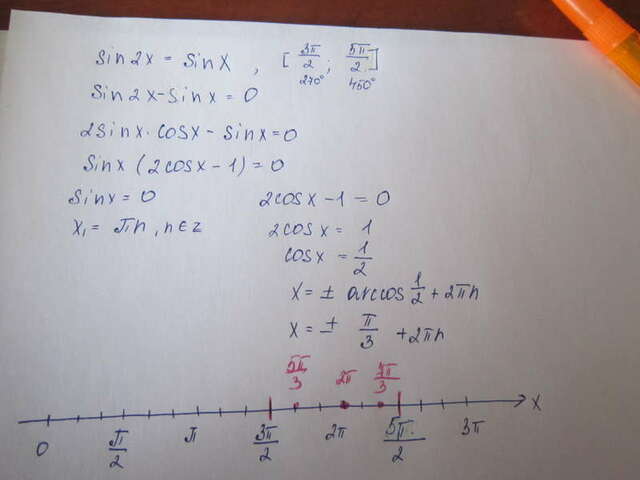 sin2x = sinx, [3π/2; 5π/2]
270° 450°
sin2x-sinx = 0
2sinx·cosx - sinx=0
sinx(2cosx-1)=0
sinx=0 2cosx-1=0
x₁ = πn, n∈z 2cosx = 1
cosx = 1/2
x = ± arccos 1/2 + 2πn
x = ± π/3 + 2πn
5π/3 2π 7π/3
x
0 π/2 π 3π/2 2π 5π/2 3π